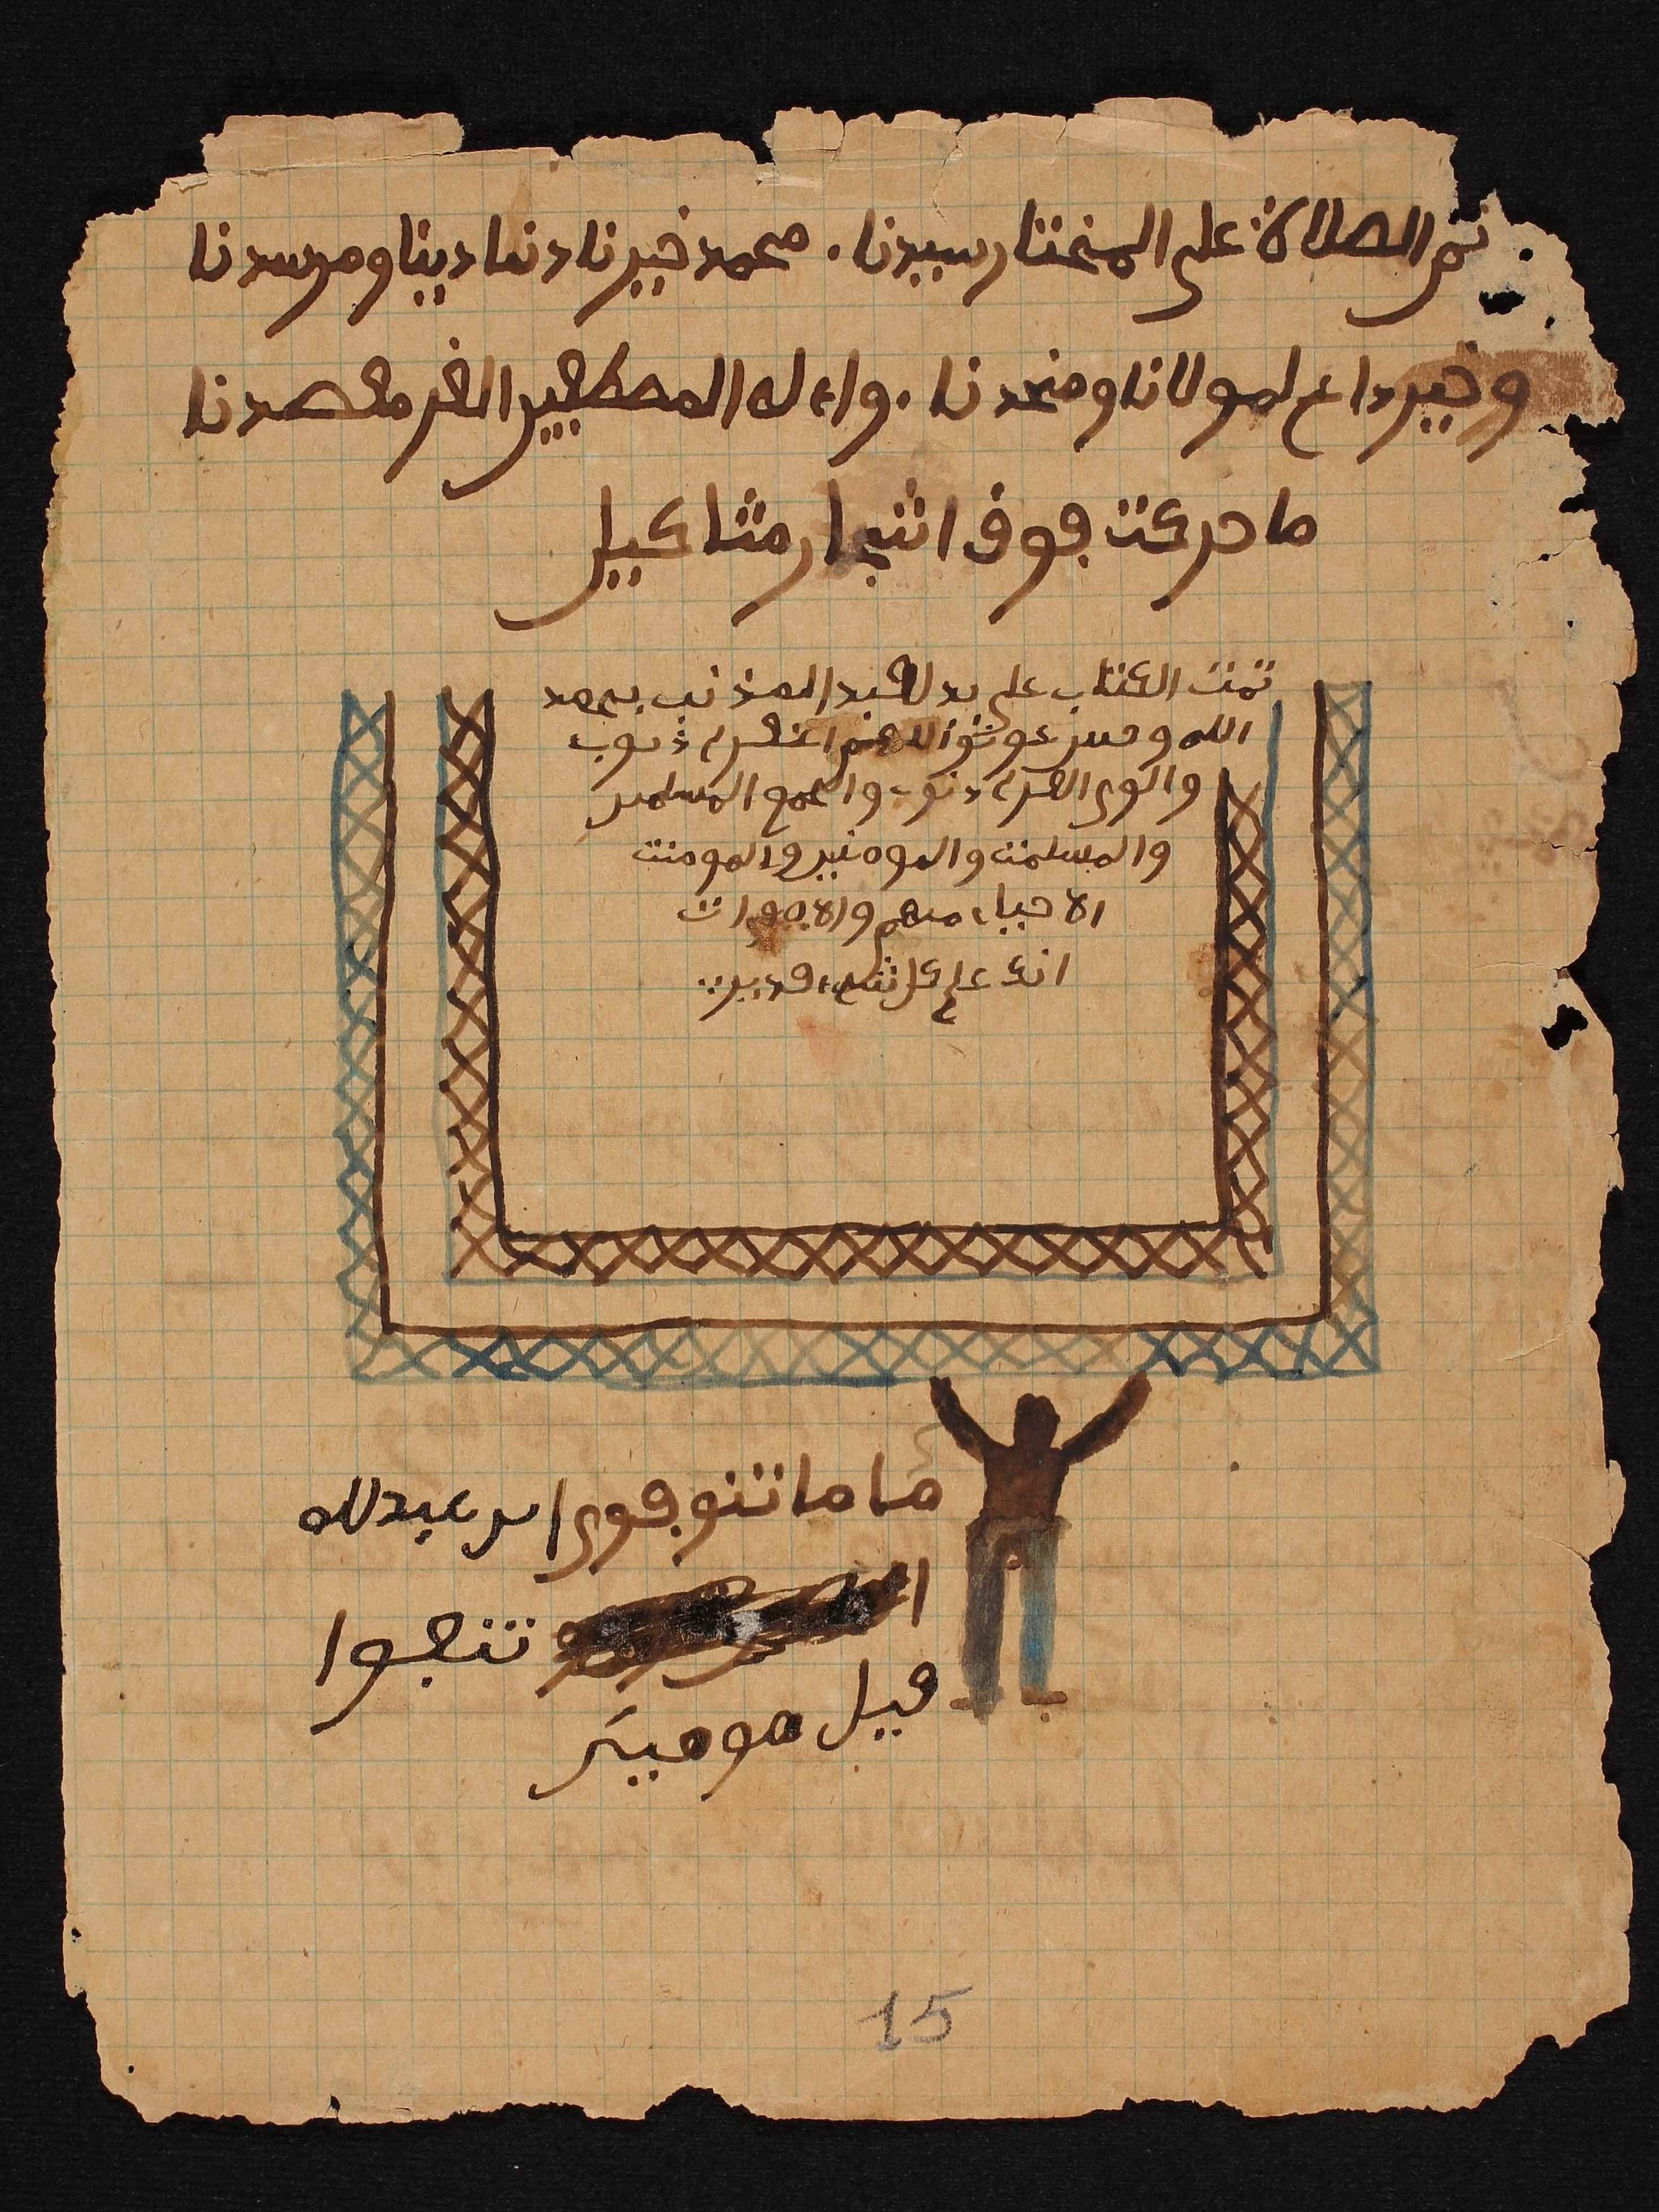 ثم الصلاة على المختار سيدنا . محمد خيرنا دنيا دينا ومرسدنا
وخير داع لمولانا ومنجدنا . وءاله المصطفين الغر مقصدنا
ما حركت فوق اشجار مثاكيل
تمت الكتاب على يد لعبد المذنب بحمد
الله وحسن عونه اللهم اغفر له ذنوب
والوى الغر له ذنوب والجمع المسلمين
والمسلمت والمومنين والمومنت
الاحياء منهم والاموات
انك على كل شيء قدير
ماما تنو فوى ابن عبد لله
تنفوا
فيل مومين
15